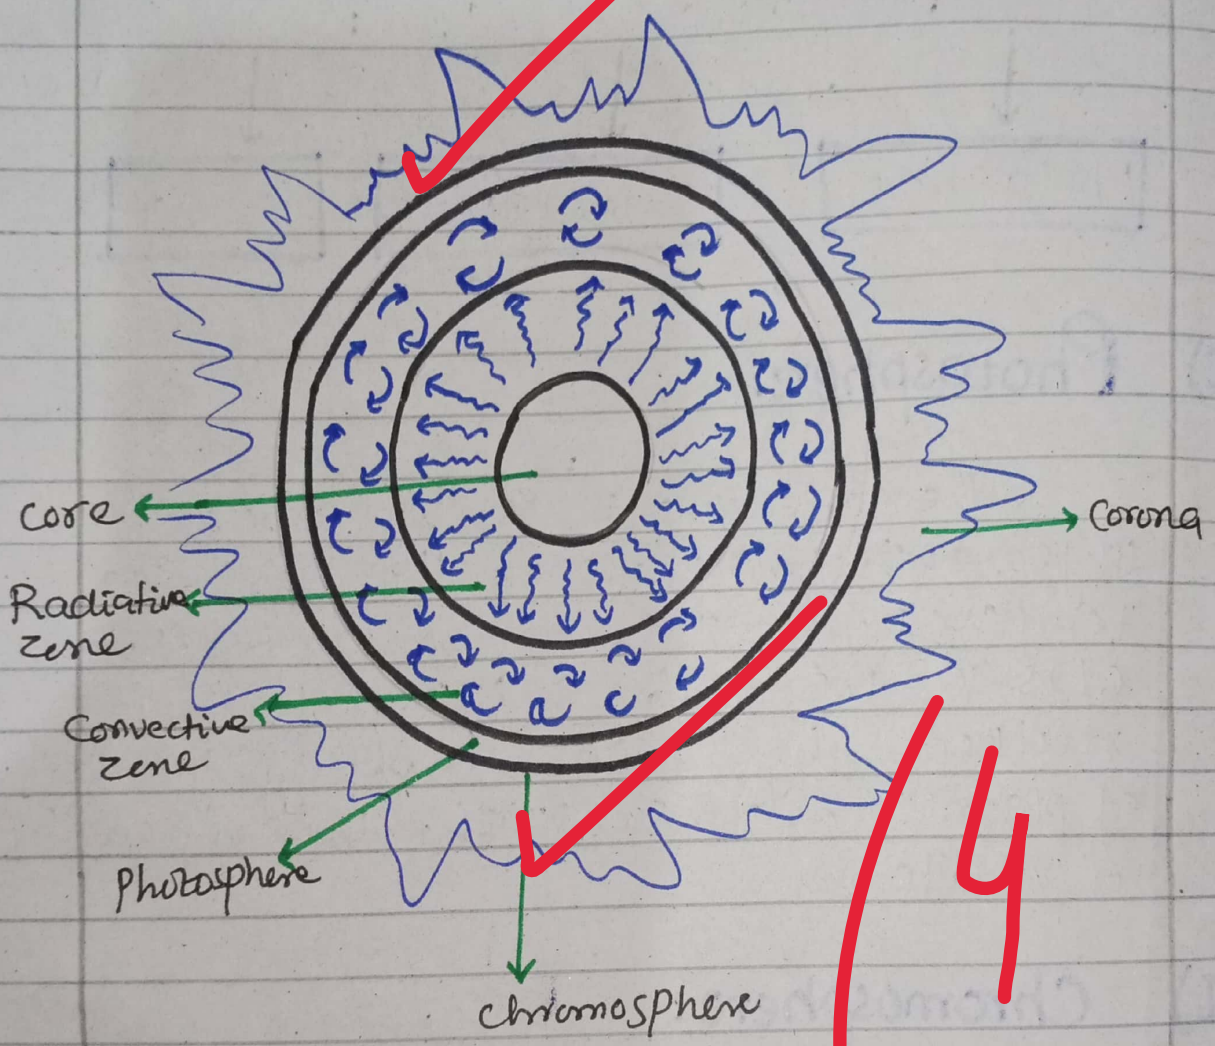 core
Corona
Radiative
zone
Convective
zone
Photosphere
chromosphere
4